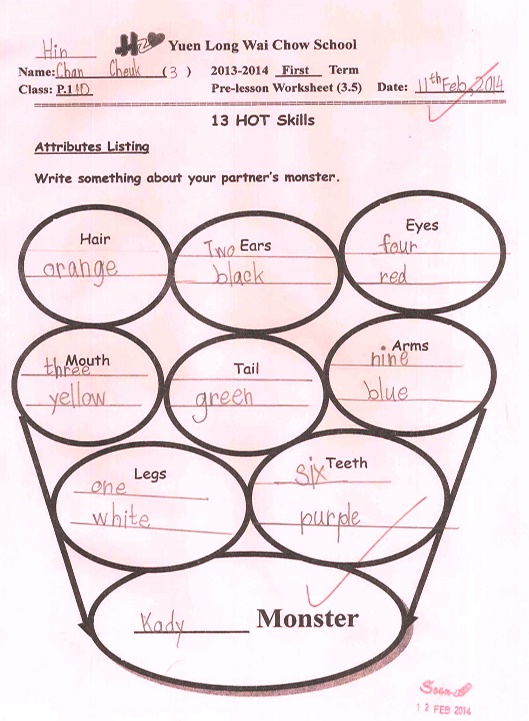 Hin Yuen Long Wai Chow School
Name: Chan Cheuk ( 3 ) 2013-2014 First Term
Class: P.1 D Pre-lesson Worksheet (3.5) Date: 11th Feb, 2014
13 HOT Skills
Attributes Listing
Write something about your partner's monster.
Hair
orange
Two Ears
black
Eyes
four
red
Mouth
three
yellow
Tail
green
Arms
nine
blue
Legs
one
white
six Teeth
purple
Kady Monster
12 FEB 2014